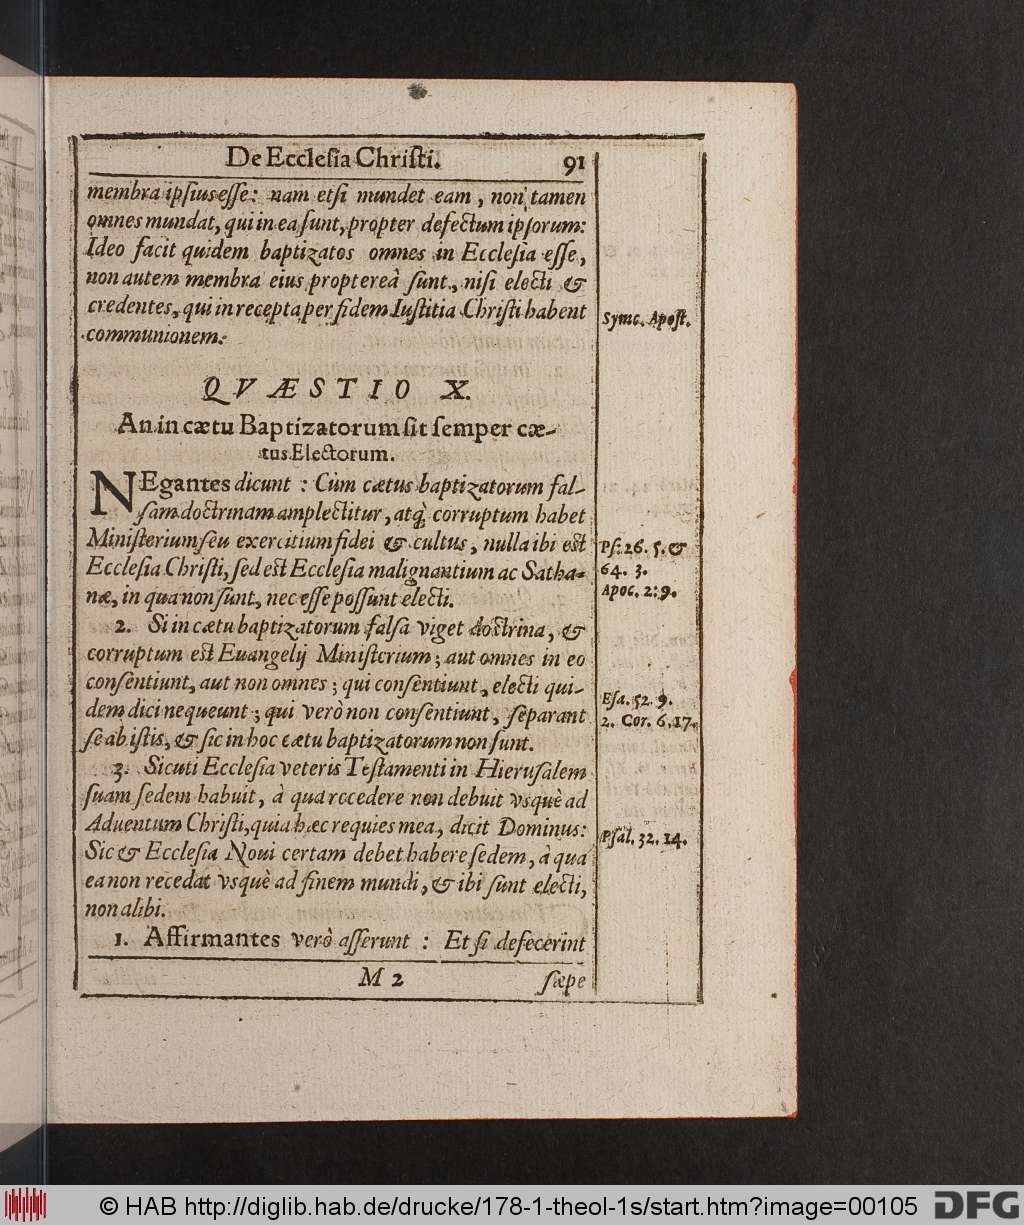 De Ecclesia Christi. 91
membra ipsius esse: nam etsi mundet eam, non tamen
omnes mundat, qui in ea sunt, propter defectum ipsorum:
Ideo facit quidem baptizatos omnes in Ecclesia esse,
non autem membra eius proptereà sunt, nisi electi &
credentes, qui in recepta per fidem Iustitia Christi habent
communionem.
Symc. Apost.
QVÆSTIO X.
An in cætu Baptizatorum sit semper cæ-
tus Electorum.
NEgantes dicunt: Cùm cætus baptizatorum fal-
sam doctrinam amplectitur, atq; corruptum habet
Ministerium seu exercitium fidei & cultus, nulla ibi est
Ecclesia Christi, sed est Ecclesia malignantium ac Satha-
næ, in qua non sunt, nec esse possunt electi.
Ps. 26. 5. &
64. 3.
Apoc. 2: 9.
2. Si in cætu baptizatorum falsa viget doctrina, &
corruptum est Euangelij Ministerium; aut omnes in eo
consentiunt, aut non omnes; qui consentiunt, electi qui-
dem dici nequeunt; qui verò non consentiunt, separant
se ab istis, & sic in hoc cætu baptizatorum non sunt.
Esa. 52. 9.
2. Cor. 6. 17.
3. Sicuti Ecclesia veteris Testamenti in Hierusalem
suam sedem habuit, à qua recedere non debuit vsquè ad
Aduentum Christi, quia hæc requies mea, dicit Dominus:
Sic & Ecclesia Noui certam debet habere sedem, à qua
ea non recedat vsquè ad finem mundi, & ibi sunt electi,
non alibi.
Psal. 32. 14.
1. Affirmantes verò asserunt: Et si defecerint
M 2 sæpe
© HAB http://diglib.hab.de/drucke/178-1-theol-1s/start.htm?image=00105
DFG